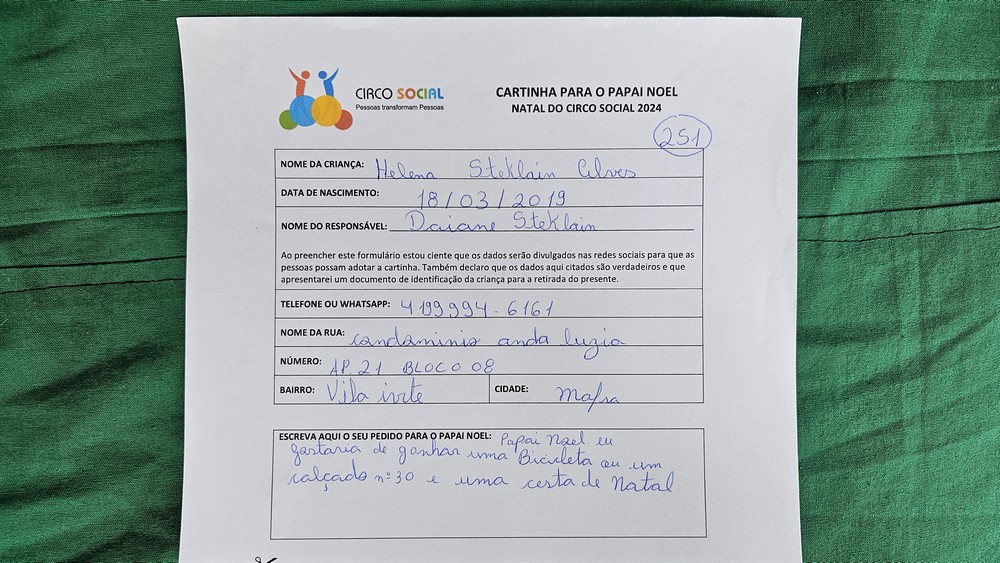 CIRCO SOCIAL
Pessoas transformam Pessoas
CARTINHA PARA O PAPAI NOEL
NATAL DO CIRCO SOCIAL 2024
251
NOME DA CRIANÇA: Helena Steklain Alves
DATA DE NASCIMENTO: 18/03/2019
NOME DO RESPONSÁVEL: Daiane Steklain
Ao preencher este formulário estou ciente que os dados serão divulgados nas redes sociais para que as
pessoas possam adotar a cartinha. Também declaro que os dados aqui citados são verdadeiros e que
apresentarei um documento de identificação da criança para a retirada do presente.
TELEFONE OU WHATSAPP: 4199994-6161
NOME DA RUA: condominio anda luzia
NÚMERO: AP 21 BLOCO 08
BAIRRO: Vila ivete CIDADE: Mafra
ESCREVA AQUI O SEU PEDIDO PARA O PAPAI NOEL: Papai Noel eu
gostaria de ganhar uma Bicicleta ou um
calçado nº 30 e uma cesta de Natal